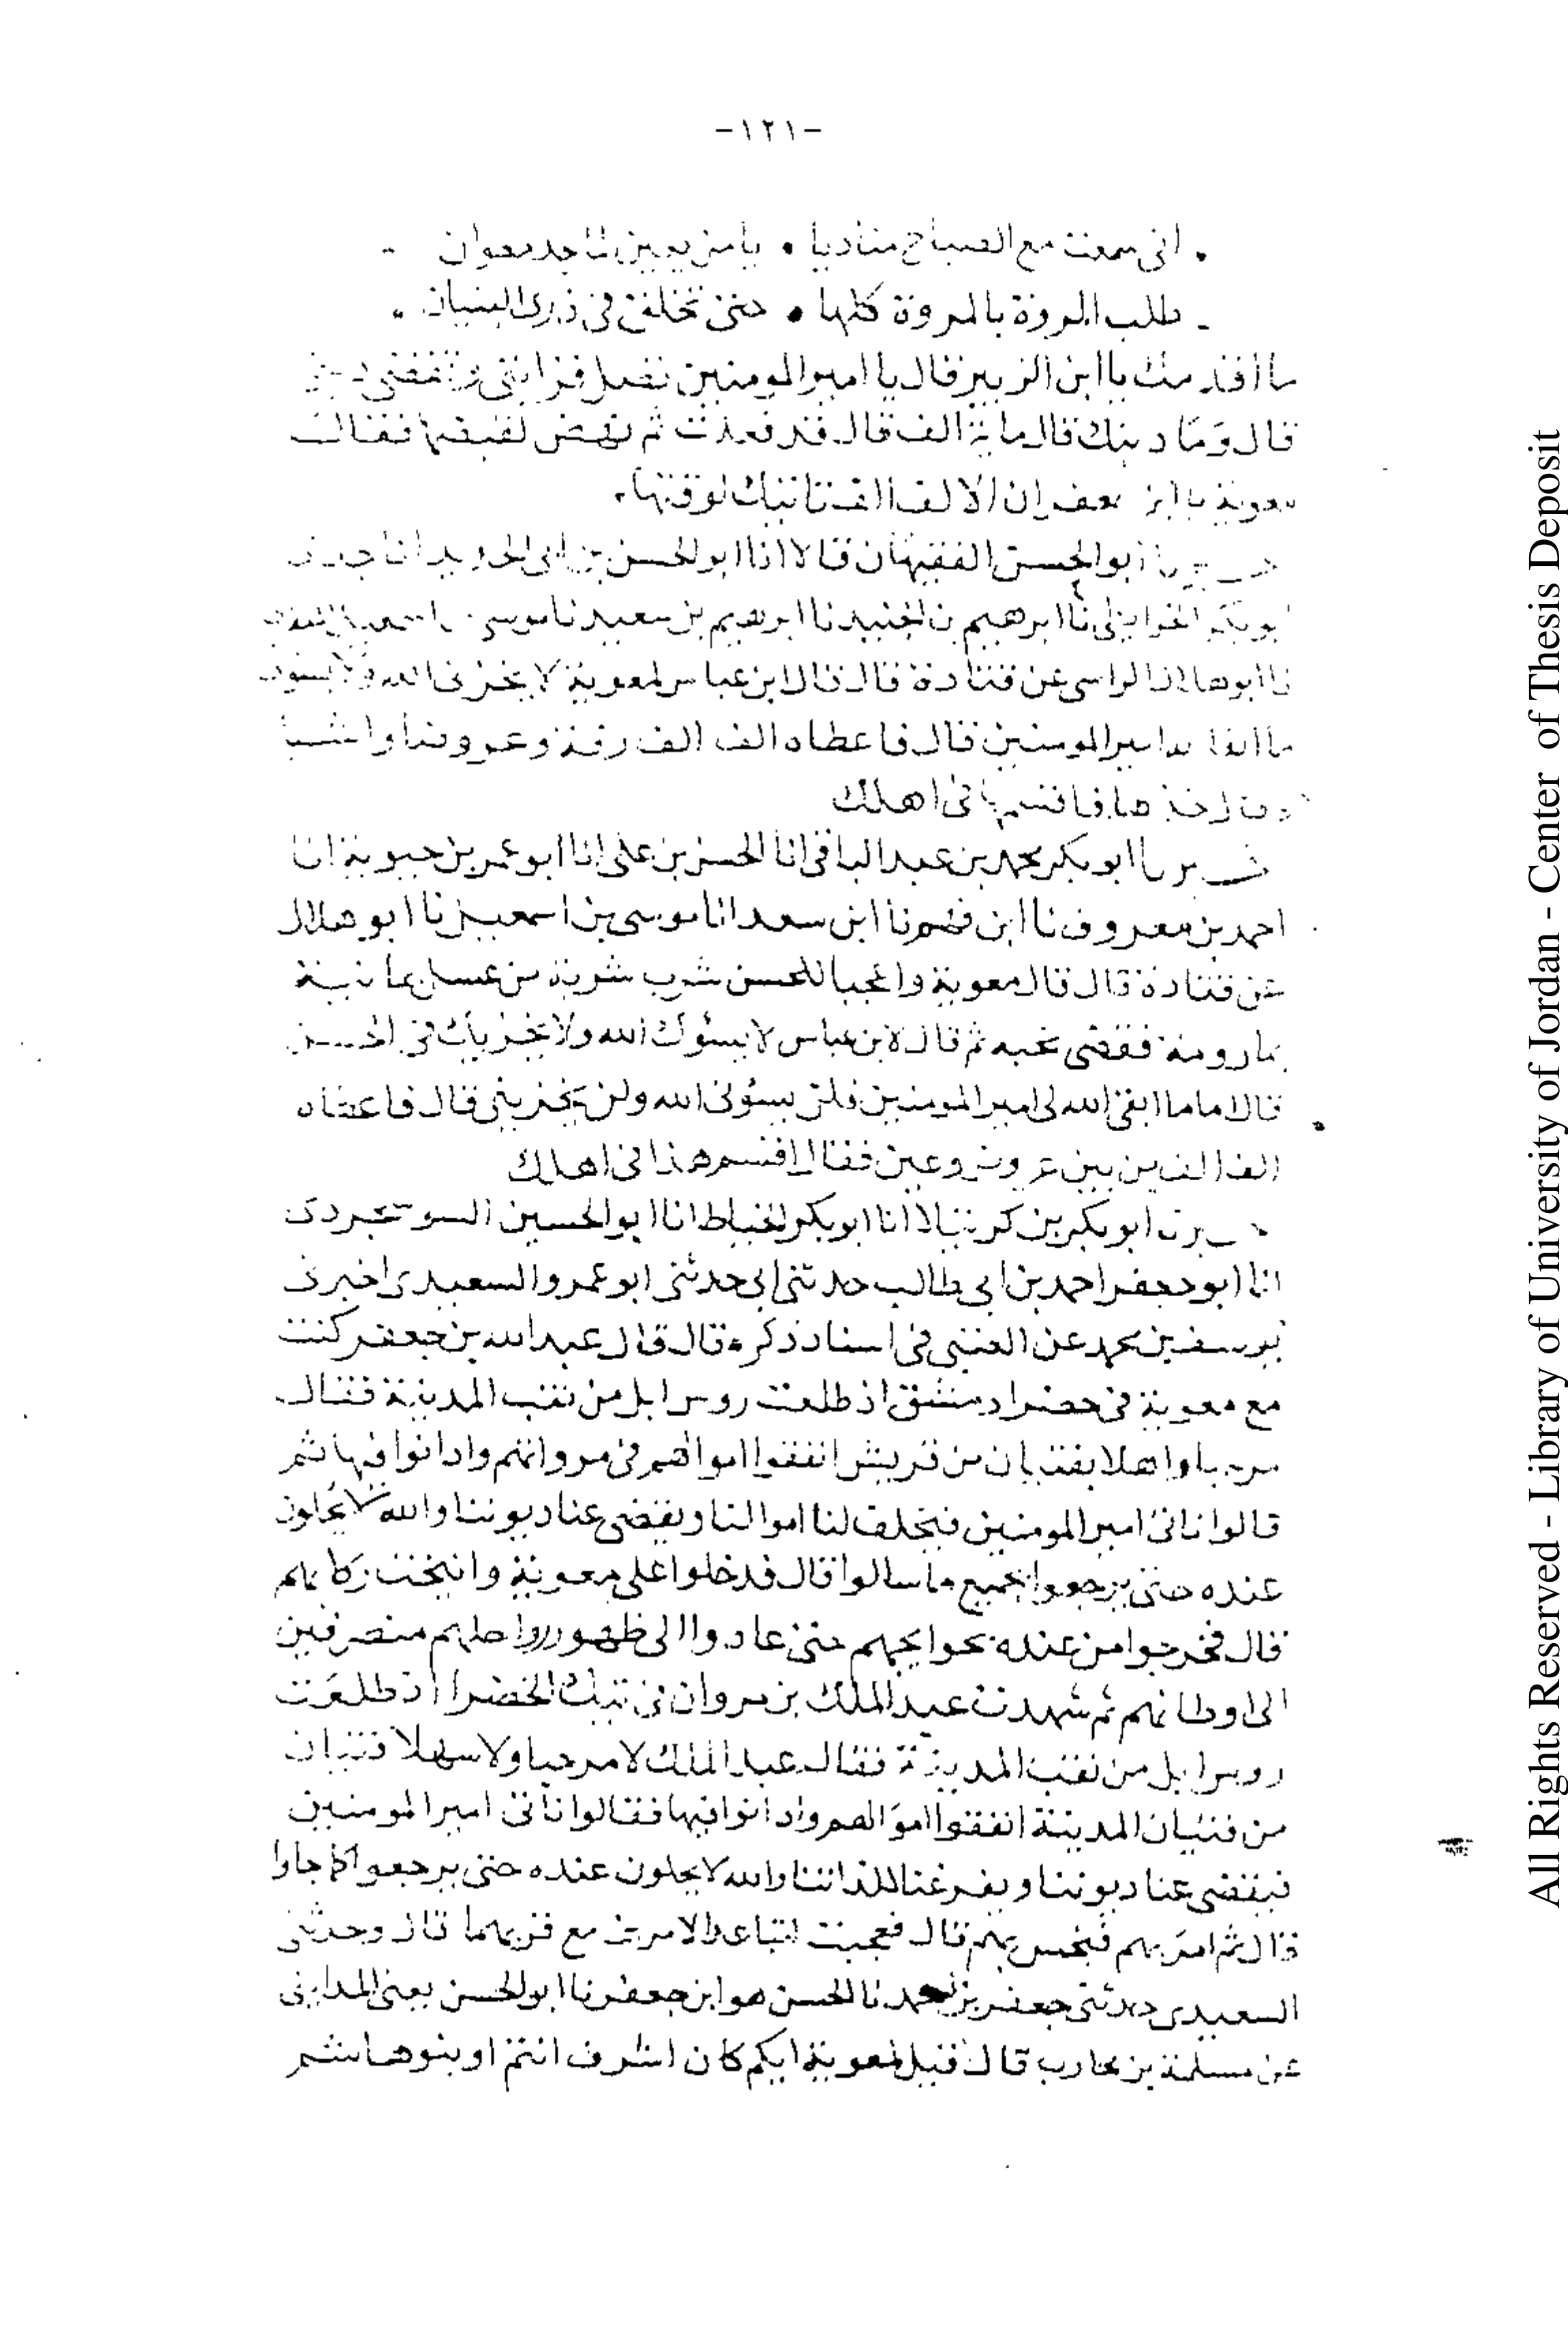 -١٢١-
اني سمعت مع الصباح مناديا • يا من يعين لماجد معوان
طلب المروة بالمروة كلها • حتى تخلق في ذرى البنيان
ما أقدمك يا ابن الزبير قال يا امير المومنين تصل قرابتي وتقضي ديني
قال وما دينك قال ماية الف قال قد فعلت ثم نهض لقبضها فقال
معوية يا ابن ان الالف الف تاتيك لوقتها
ابو الحسن الفقيهان قالا انا ابو الحسن بن ابي الحديد انا جدي
ابو بكر الخرايطي نا ابرهيم بن الجنيد نا ابرهيم بن سعيد نا موسى
نا ابو هلال الراسبي عن قتادة قال قال ابن عباس لمعوية لا يخزني الله ولا يسوني
ما ابقا الله امير المومنين قال فاعطاه الف الف رقة وعروضا واشيا
وقال خذها فاقسمها في اهلك
ابو بكر محمد بن عبد الباقي انا الحسن بن علي انا ابو عمر بن حيوية انا
احمد بن معروف نا ابن فهم نا ابن سعد انا موسى بن اسمعيل نا ابو هلال
عن قتادة قال قال معوية واعجبا للحسن شرب شربة من عسل يمانية
بما رومة فقضى نحبه ثم قال لابن عباس لا يسؤك الله ولا يخزيك في الحسن
قال اما ما ابقى الله لي امير المومنين فلن يسؤني الله ولن يخزيني قال فاعطاه
الف الف من بين عروض وعين فقال اقسم هذا في اهلك
ابو بكر بن كرتيلا انا ابو بكر الخياط انا ابو الحسين السوسنجردي
انا ابو جعفر احمد بن ابي طالب حدثني ابي حدثني ابو عمرو السعيدي اخبرني
يوسف بن محمد عن العتبي في اسناد ذكره قال قال عبد الله بن جعفر كنت
مع معوية في خضرا دمشق اذ طلعت روس ابل من نقب المدينة فقال
مرحبا واهلا بفتيان من قريش انفقوا اموالهم في مرواتهم وادانوا فيها ثم
قالوا ناتي امير المومنين فيخلف لنا اموالنا ويقضي عنا ديوننا والله لا يحلون
عنده حتى يرجعوا بجميع ما سالوا قال فدخلوا على معوية وانيخت ركابهم
قال فخرجوا من عنده بحوايجهم حتى عادوا الى ظهور رواحلهم منصرفين
الى اوطانهم ثم شهدت عبد الملك بن مروان في تيك الخضرا اذ طلعت
روس ابل من نقب المدينة فقال عبد الملك لا مرحبا ولا سهلا فتيان
من فتيان المدينة انفقوا اموالهم وادانوا فيها فقالوا ناتي امير المومنين
فيقضي عنا ديوننا ويفرغنا للذاتنا والله لا يحلون عنده حتى يرجعوا كما جاوا
قال ثم امر بهم فنخس بهم قال فعجبت لتباعد الامرين مع قربهما قال وحدثني
السعيدي حدثني جعفر بن محمد نا الحسن هو ابن جعفر نا ابو الحسن يعني المدايني
عن مسلمة بن محارب قال قيل لمعوية ايكم كان اشرف انتم او بنو هاشم
All Rights Reserved - Library of University of Jordan - Center of Thesis Deposit